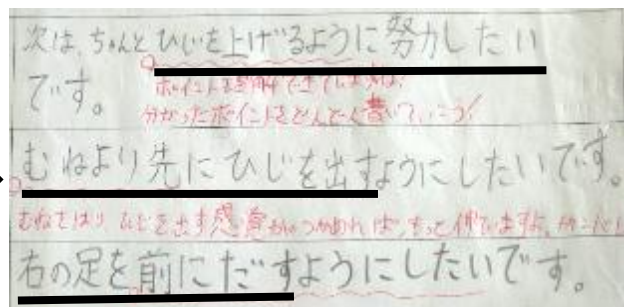 次は、ちゃんとひじを上げるように努力したい
です。
ポイントを理解できていますね!
分かったポイントをどんどん書いていこう!
むねより先にひじを出すようにしたいです。
むねをはり ひじを出す感覚がつかめれば、もっと伸びていきますよ。
右の足を前にだすようにしたいです。